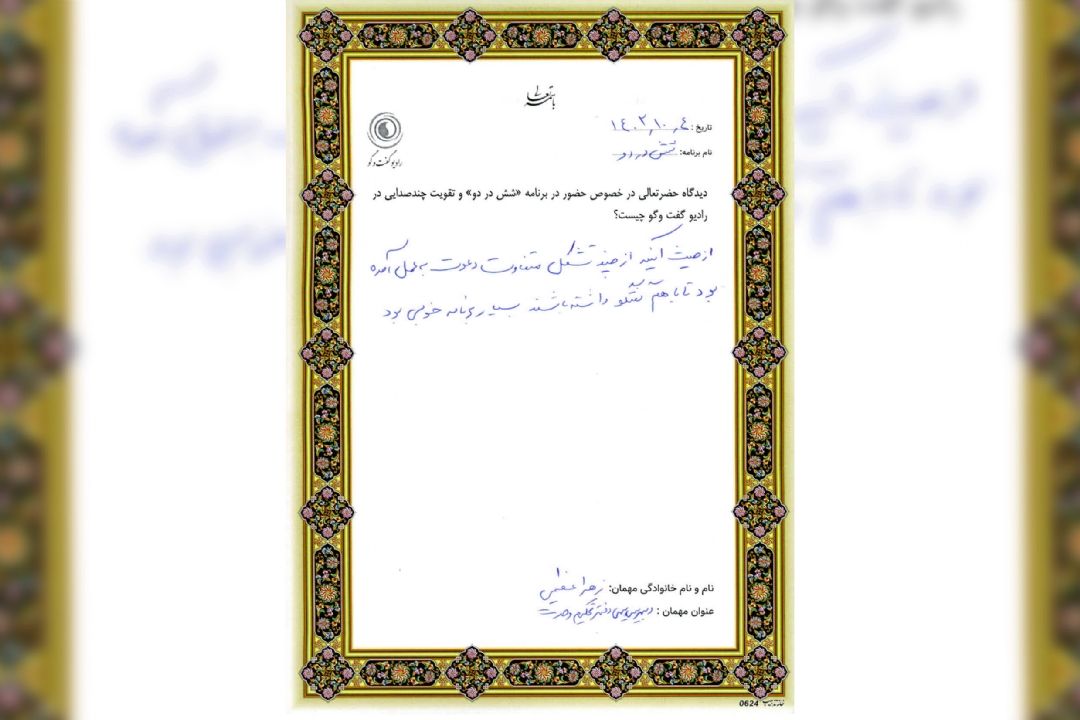 باسمه تعالی
تاریخ: ۱۴۰۲٫۱۰٫۴
نام برنامه: شش در دو
رادیو گفت و گو
دیدگاه حضرتعالی در خصوص حضور در برنامه «شش در دو» و تقویت چندصدایی در
رادیو گفت وگو چیست؟
از حیث اینکه از چند تشکل متفاوت دعوت به عمل آمده
بود تا با هم گفتگو داشته باشند بسیار برنامه خوبی بود
نام و نام خانوادگی مهمان: زهرا عظیمی
عنوان مهمان : دبیر سیاسی دفتر تحکیم وحدت
0624